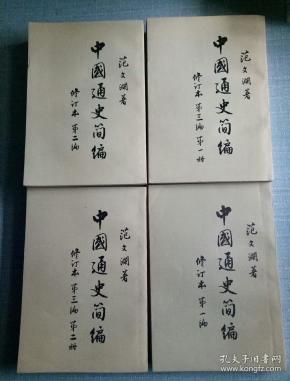 范文瀾著
中國通史簡编
修订本 第二编
范文瀾著
中國通史簡编
修订本 第三编 第一册
范文瀾著
中國通史簡编
修订本 第三编 第二册
范文瀾著
中國通史簡编
修订本 第一编
孔夫子旧书网